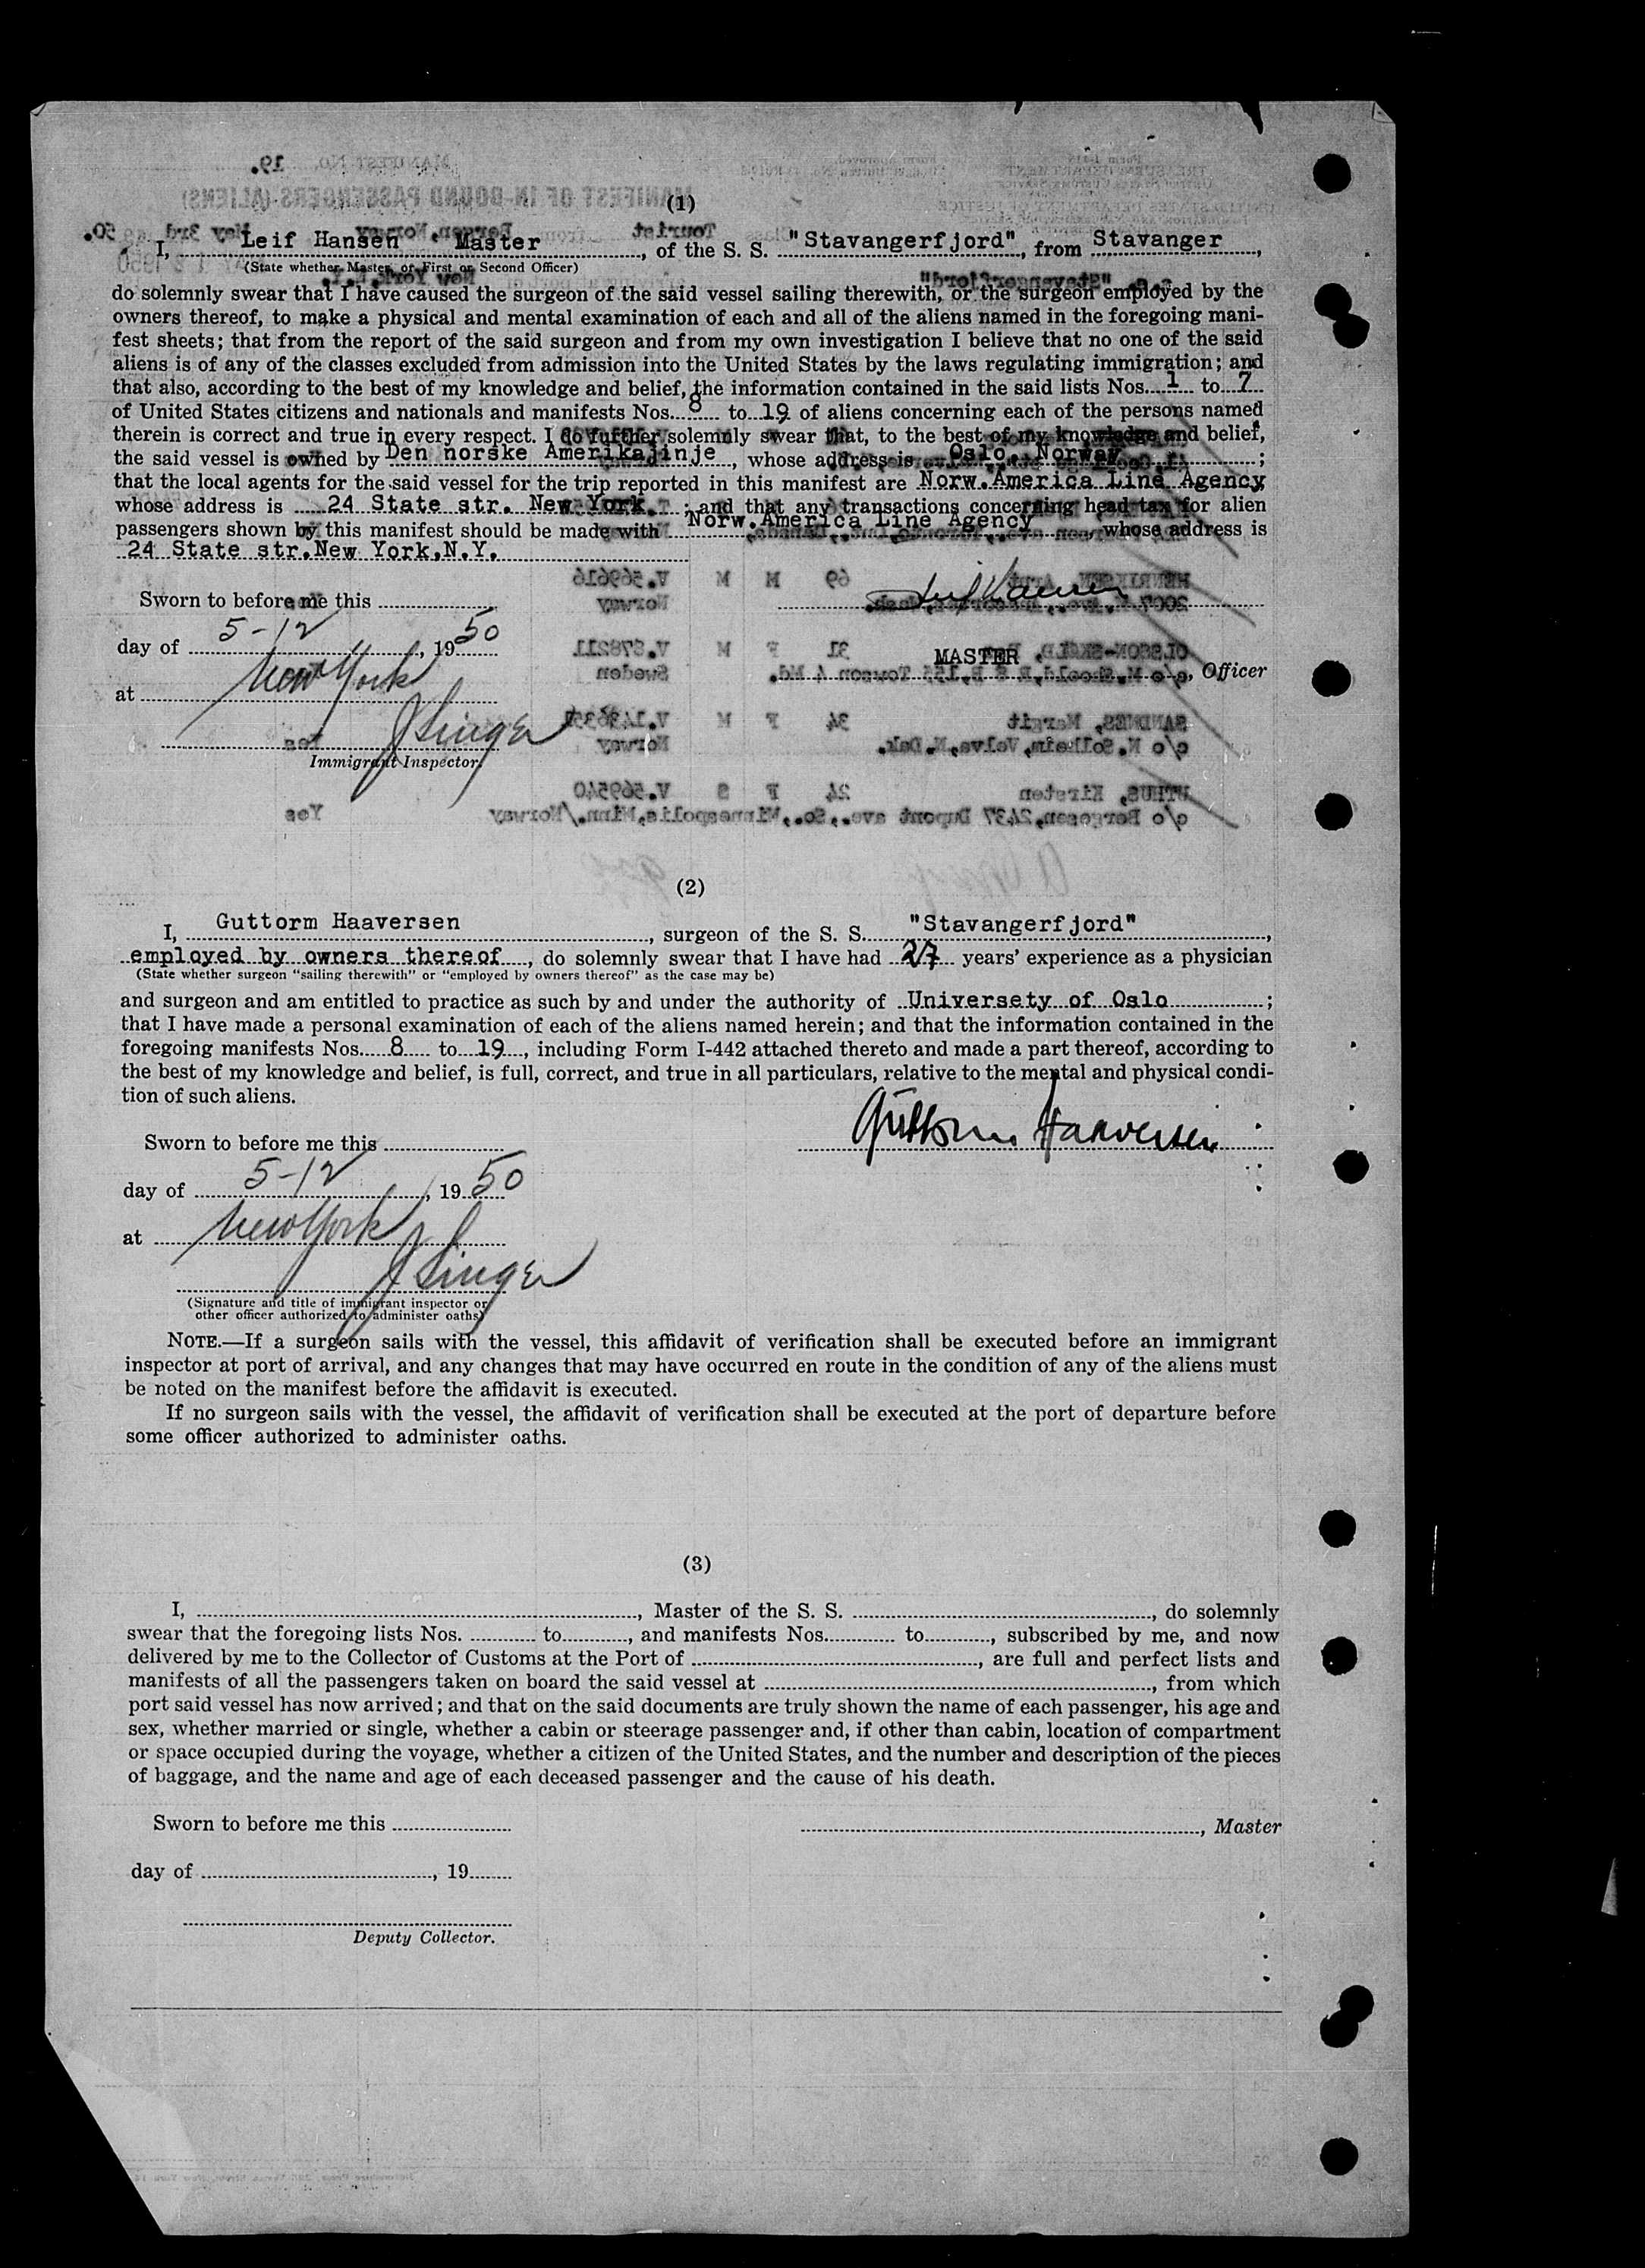 (1)
I, Leif Hansen Master, of the S. S. "Stavangerfjord", from Stavanger,
(State whether Master, or First or Second Officer)
do solemnly swear that I have caused the surgeon of the said vessel sailing therewith, or the surgeon employed by the
owners thereof, to make a physical and mental examination of each and all of the aliens named in the foregoing mani-
fest sheets; that from the report of the said surgeon and from my own investigation I believe that no one of the said
aliens is of any of the classes excluded from admission into the United States by the laws regulating immigration; and
that also, according to the best of my knowledge and belief, the information contained in the said lists Nos. 1 to 7
of United States citizens and nationals and manifests Nos. 8 to 19 of aliens concerning each of the persons named
therein is correct and true in every respect. I do further solemnly swear that, to the best of my knowledge and belief,
the said vessel is owned by Den norske Amerikalinje, whose address is Oslo, Norway;
that the local agents for the said vessel for the trip reported in this manifest are Norw.America Line Agency
whose address is 24 State str. New York. ; and that any transactions concerning head tax for alien
passengers shown by this manifest should be made with Norw.America Line Agency whose address is
24 State str.New York,N.Y.
Sworn to before me this
Leif Hansen
day of 5-12, 1950
MASTER, Officer
at New York
J Singer
Immigrant Inspector.
(2)
I, Guttorm Haaversen, surgeon of the S. S. "Stavangerfjord",
employed by owners thereof, do solemnly swear that I have had 27 years' experience as a physician
(State whether surgeon "sailing therewith" or "employed by owners thereof" as the case may be)
and surgeon and am entitled to practice as such by and under the authority of Universety of Oslo;
that I have made a personal examination of each of the aliens named herein; and that the information contained in the
foregoing manifests Nos. 8 to 19, including Form I-442 attached thereto and made a part thereof, according to
the best of my knowledge and belief, is full, correct, and true in all particulars, relative to the mental and physical condi-
tion of such aliens.
Guttorm Haaversen
Sworn to before me this
day of 5-12, 1950
at New York
J Singer
(Signature and title of immigrant inspector or
other officer authorized to administer oaths)
NOTE.—If a surgeon sails with the vessel, this affidavit of verification shall be executed before an immigrant
inspector at port of arrival, and any changes that may have occurred en route in the condition of any of the aliens must
be noted on the manifest before the affidavit is executed.
If no surgeon sails with the vessel, the affidavit of verification shall be executed at the port of departure before
some officer authorized to administer oaths.
(3)
I, , Master of the S. S. , do solemnly
swear that the foregoing lists Nos. to , and manifests Nos. to , subscribed by me, and now
delivered by me to the Collector of Customs at the Port of , are full and perfect lists and
manifests of all the passengers taken on board the said vessel at , from which
port said vessel has now arrived; and that on the said documents are truly shown the name of each passenger, his age and
sex, whether married or single, whether a cabin or steerage passenger and, if other than cabin, location of compartment
or space occupied during the voyage, whether a citizen of the United States, and the number and description of the pieces
of baggage, and the name and age of each deceased passenger and the cause of his death.
Sworn to before me this
, Master
day of , 19
Deputy Collector.